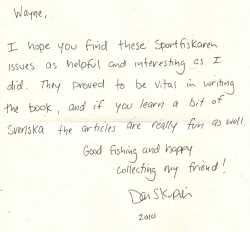 Wayne,
I hope you find these Sportfiskaren
issues as helpful and interesting as I
did. They proved to be vital in writing
the book, and if you learn a bit of
Svenska the articles are really fun as well.
Good fishing and happy
collecting my friend!
2010